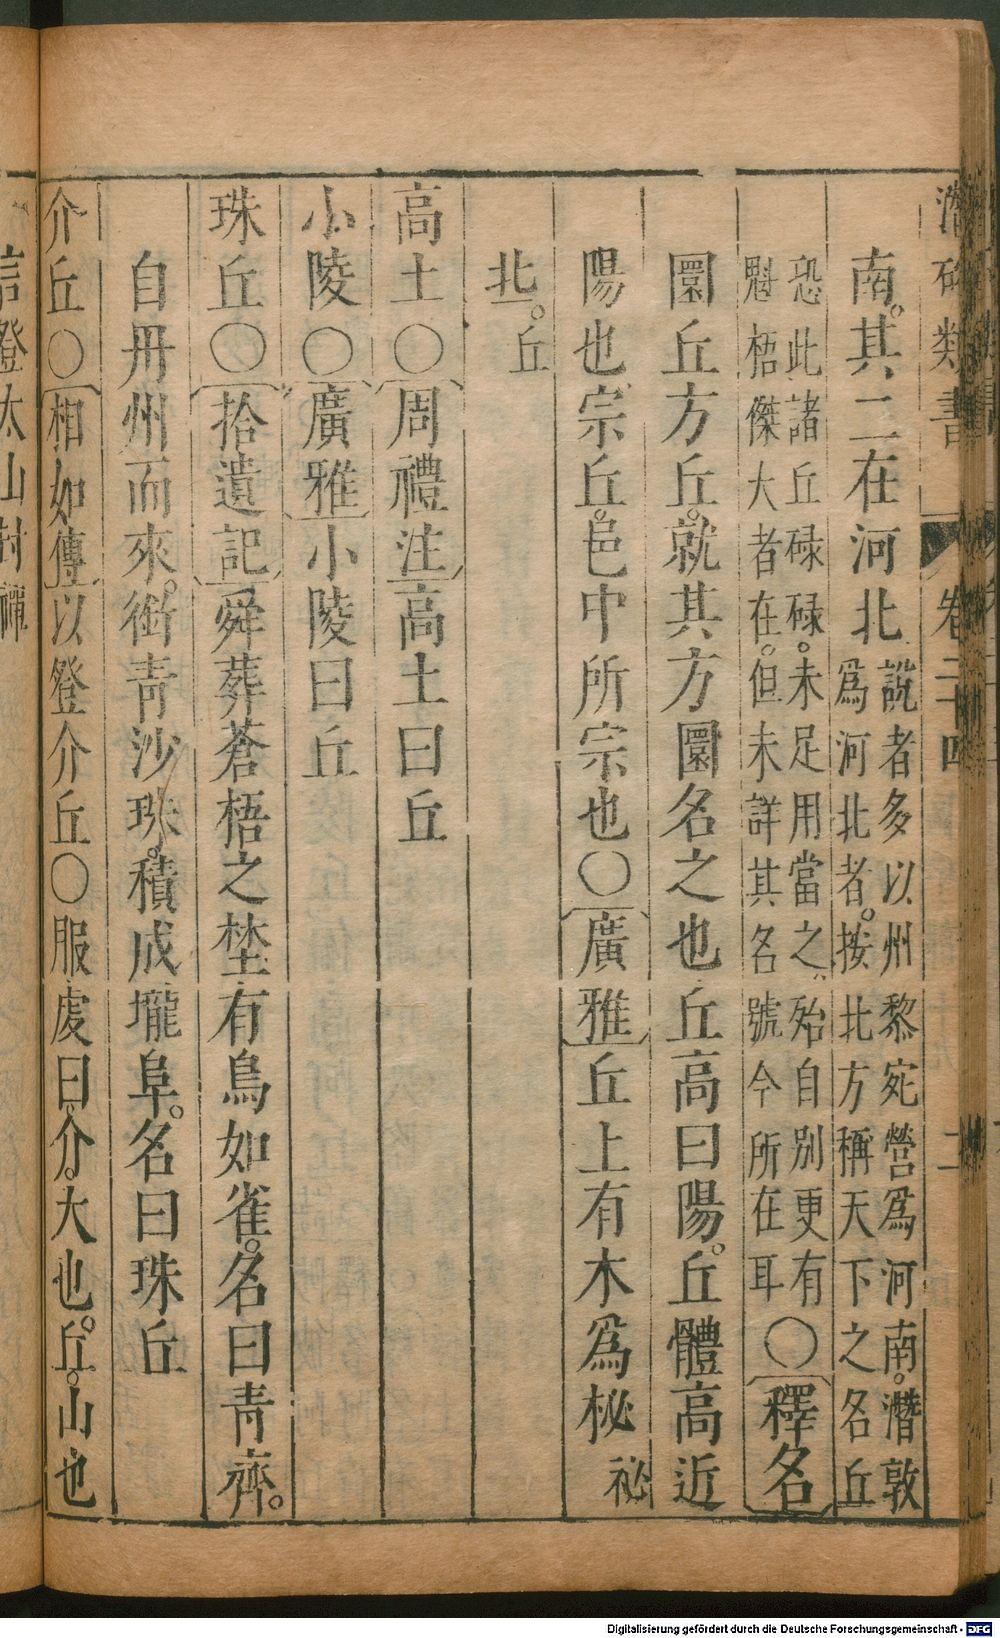 潛確類書 卷二十四 二
南。其二在河北
說者多以州黎宛營爲河南。潛敦
爲河北者。按北方稱天下之名丘
恐此諸丘碌碌。未足用當之、殆自別更有
魁梧傑大者在。但未詳其名號今所在耳
○〔釋名〕
圜丘方丘。就其方圜名之也丘高曰陽。丘體高近
陽也宗丘。邑中所宗也○〔廣雅〕丘上有木爲柲祕
北。丘
高土○〔周禮注〕高土曰丘
小陵○〔廣雅〕小陵曰丘
珠丘○〔拾遺記〕舜葬蒼梧之埜有鳥如雀。名曰青齊。
自丹州而來。銜青沙珠。積成壠阜。名曰珠丘
介丘○〔相如傳〕以登介丘○服虔曰。介。大也。丘。山也
登太山封禪
Digitalisierung gefördert durch die Deutsche Forschungsgemeinschaft - DFG